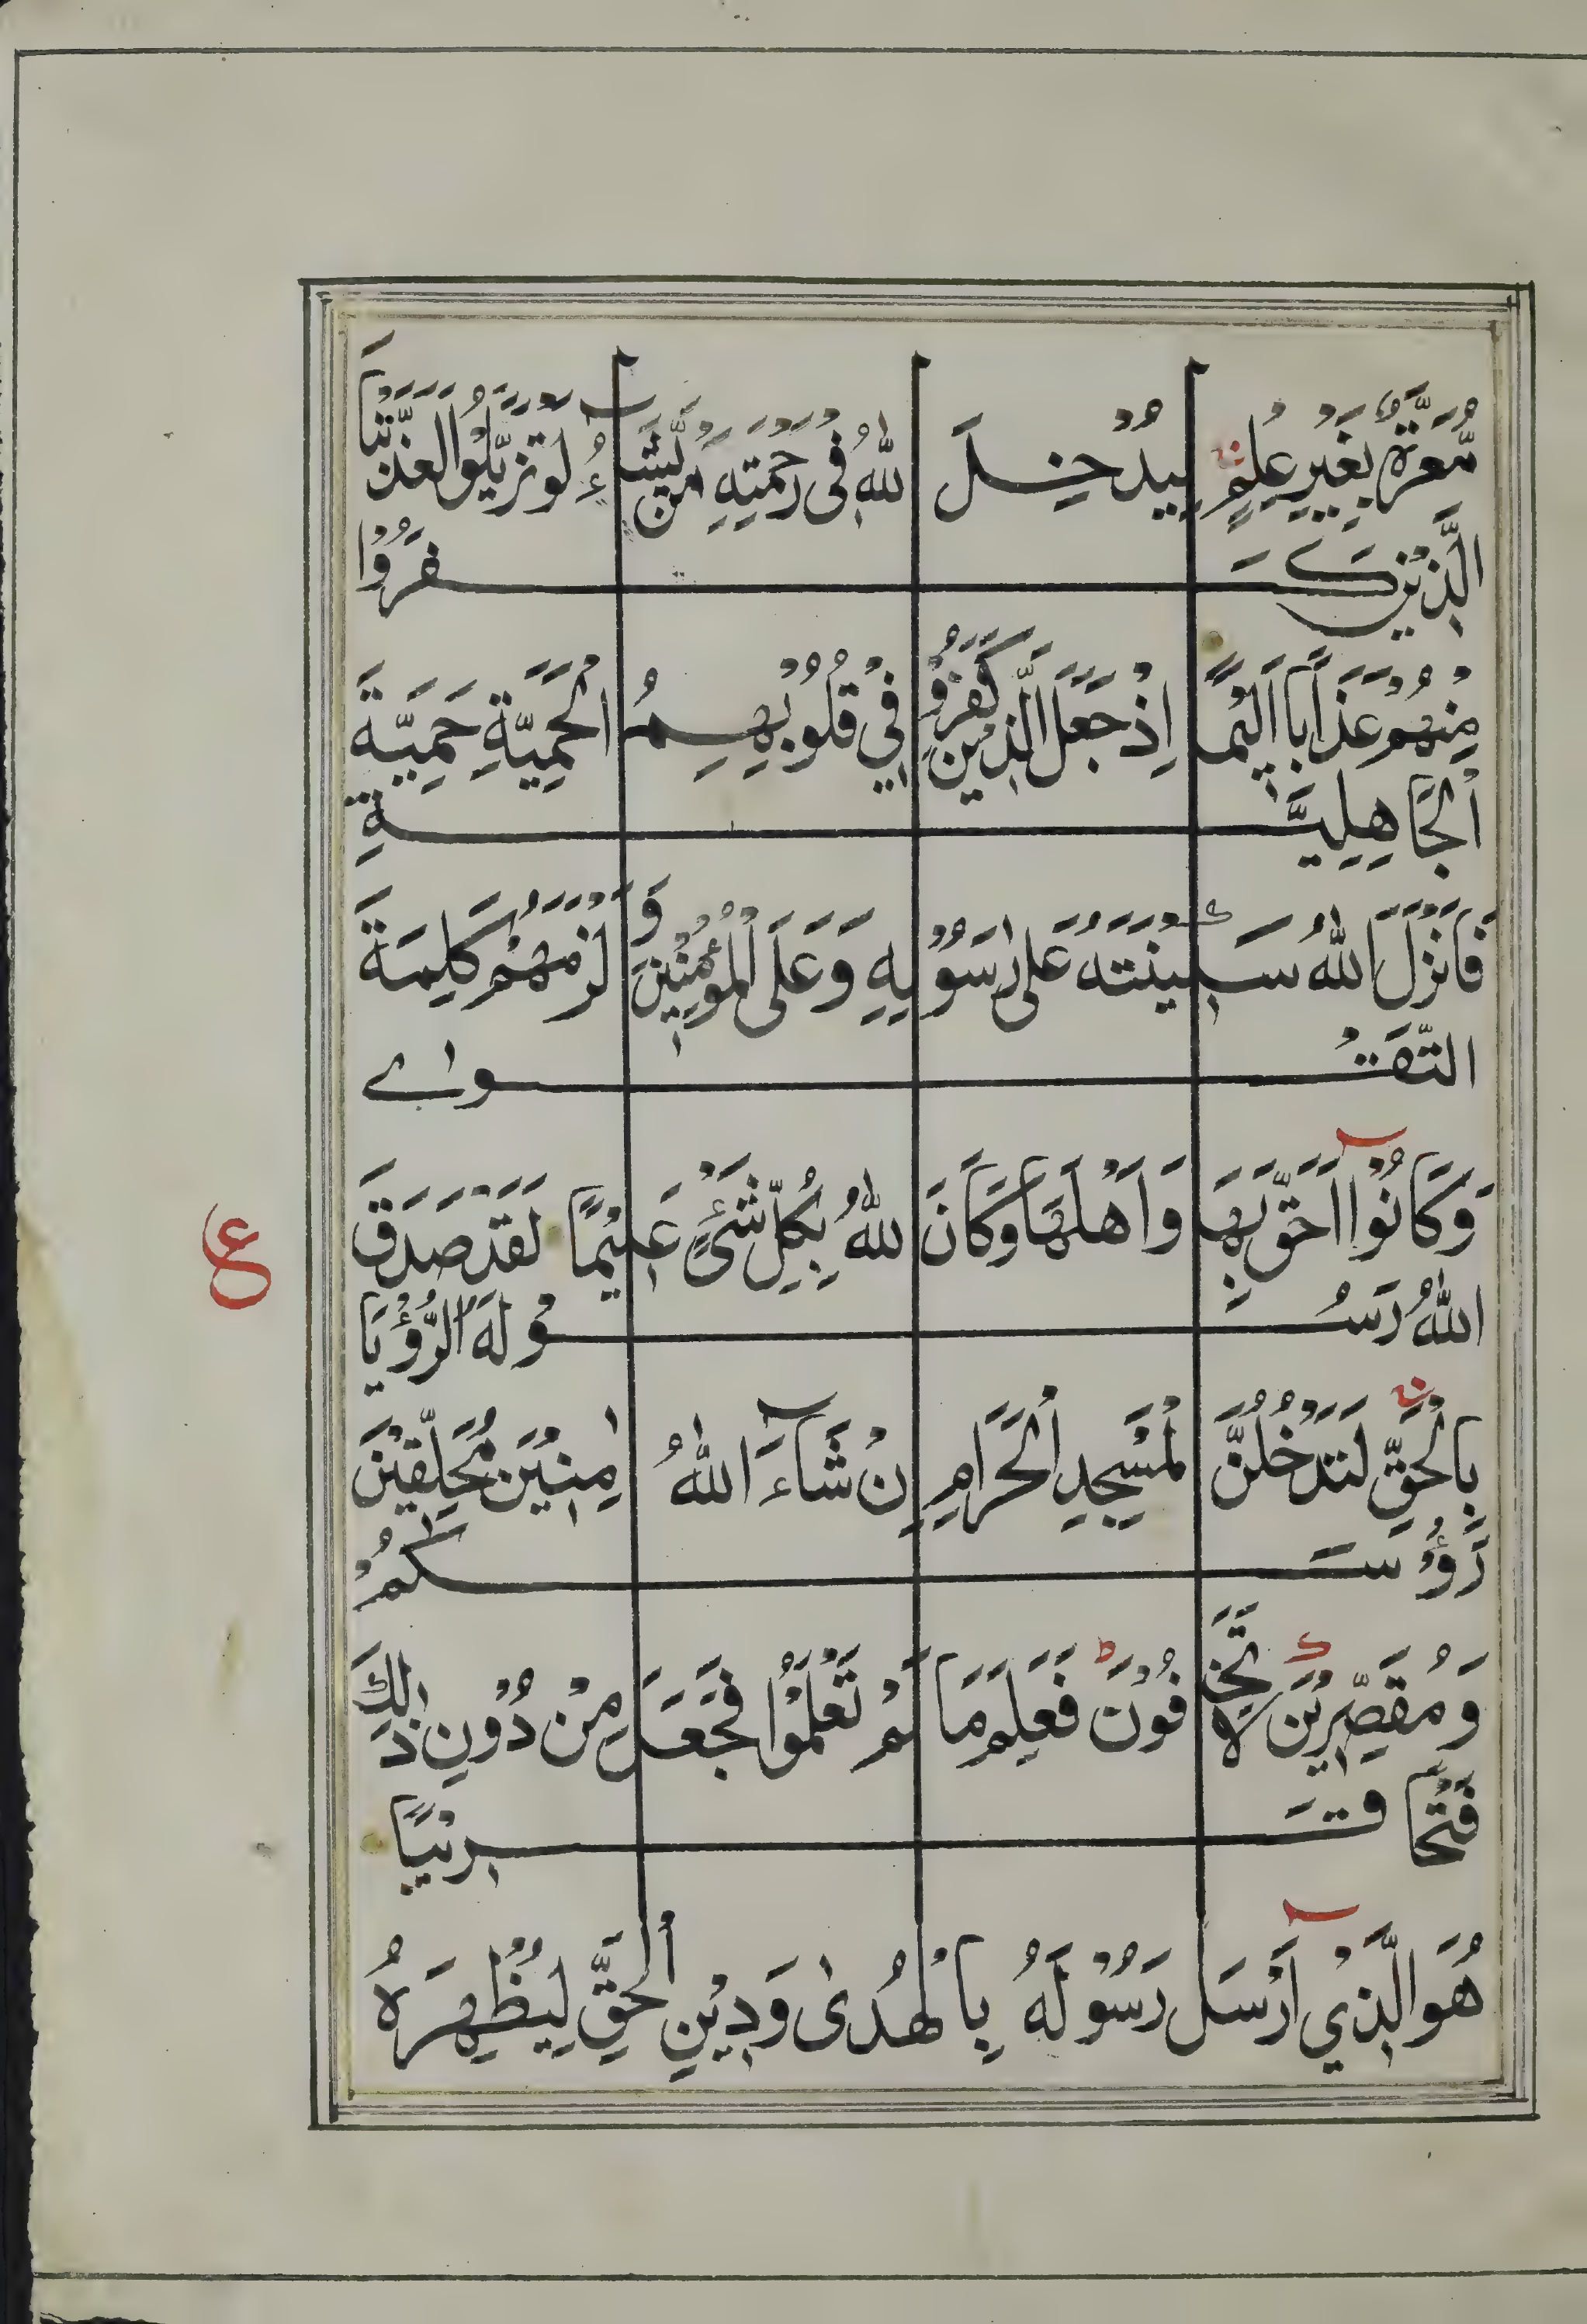 مَّعَرَّةٌ بِغَيْرِ عِلْمٍ لِيُدْخِلَ اللهُ فِى رَحْمَتِهٖ مَنْ يَّشَآءُ لَوْ تَزَيَّلُوْا لَعَذَّبْنَا
الَّذِيْنَ كَفَرُوْا
مِنْهُمْ عَذَابًا اَلِيْمًا اِذْ جَعَلَ الَّذِيْنَ كَفَرُوْا فِيْ قُلُوْبِهِمُ الْحَمِيَّةَ حَمِيَّةَ
الْجَاهِلِيَّةِ
فَاَنْزَلَ اللهُ سَكِيْنَتَهٗ عَلٰى رَسُوْلِهٖ وَعَلَى الْمُؤْمِنِيْنَ وَاَلْزَمَهُمْ كَلِمَةَ
التَّقْوٰى
وَكَانُوْا اَحَقَّ بِهَا وَاَهْلَهَا وَكَانَ اللهُ بِكُلِّ شَيْءٍ عَلِيْمًا لَقَدْ صَدَقَ
اللهُ رَسُوْلَهُ الرُّؤْيَا
ع
بِالْحَقِّ لَتَدْخُلُنَّ الْمَسْجِدَ الْحَرَامَ اِنْ شَآءَ اللهُ اٰمِنِيْنَ مُحَلِّقِيْنَ
رُؤُسَكُمْ
وَمُقَصِّرِيْنَ لَا تَخَافُوْنَ فَعَلِمَ مَا لَمْ تَعْلَمُوْا فَجَعَلَ مِنْ دُوْنِ ذٰلِكَ
فَتْحًا قَرِيْبًا
هُوَ الَّذِيْ اَرْسَلَ رَسُوْلَهٗ بِالْهُدٰى وَدِيْنِ الْحَقِّ لِيُظْهِرَهٗ